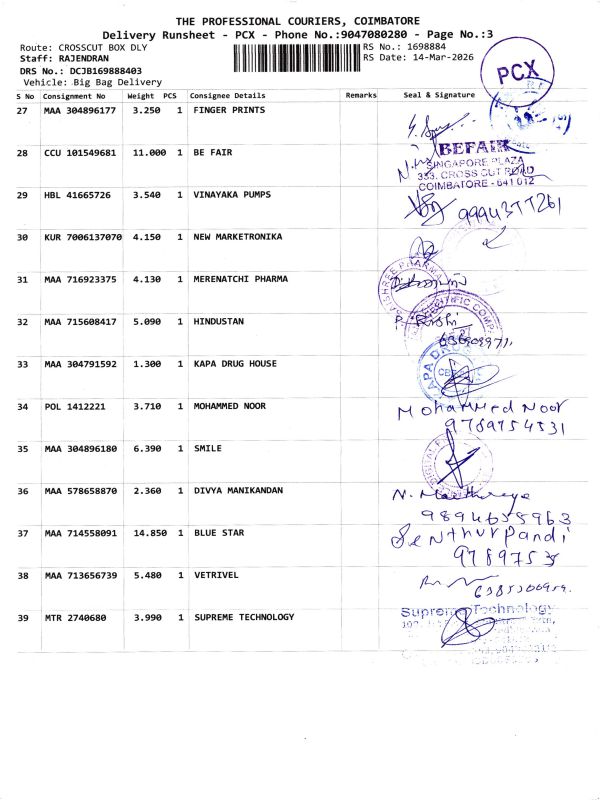 THE PROFESSIONAL COURIERS, COIMBATORE
Delivery Runsheet - PCX - Phone No.:9047080280 - Page No.:3
Route: CROSSCUT BOX DLY
RS No.: 1698884
Staff: RAJENDRAN
RS Date: 14-Mar-2026
DRS No.: DCJB169888403
Vehicle: Big Bag Delivery
PCX
S No Consignment No Weight PCS Consignee Details Remarks Seal & Signature
27 MAA 304896177 3.250 1 FINGER PRINTS
28 CCU 101549681 11.000 1 BE FAIR
BEFAIR
SINGAPORE PLAZA
333, CROSS CUT ROAD
COIMBATORE - 641 012
29 HBL 41665726 3.540 1 VINAYAKA PUMPS
9994377261
30 KUR 7006137070 4.150 1 NEW MARKETRONIKA
31 MAA 716923375 4.130 1 MERENATCHI PHARMA
32 MAA 715608417 5.090 1 HINDUSTAN
P. Rishi
33 MAA 304791592 1.300 1 KAPA DRUG HOUSE
34 POL 1412221 3.710 1 MOHAMMED NOOR
Mohammed Noor
9789754531
35 MAA 304896180 6.390 1 SMILE
36 MAA 578658870 2.360 1 DIVYA MANIKANDAN
9894658963
37 MAA 714558091 14.850 1 BLUE STAR
Senthur Pandi
978975
38 MAA 713656739 5.480 1 VETRIVEL
39 MTR 2740680 3.990 1 SUPREME TECHNOLOGY
Supreme Technology